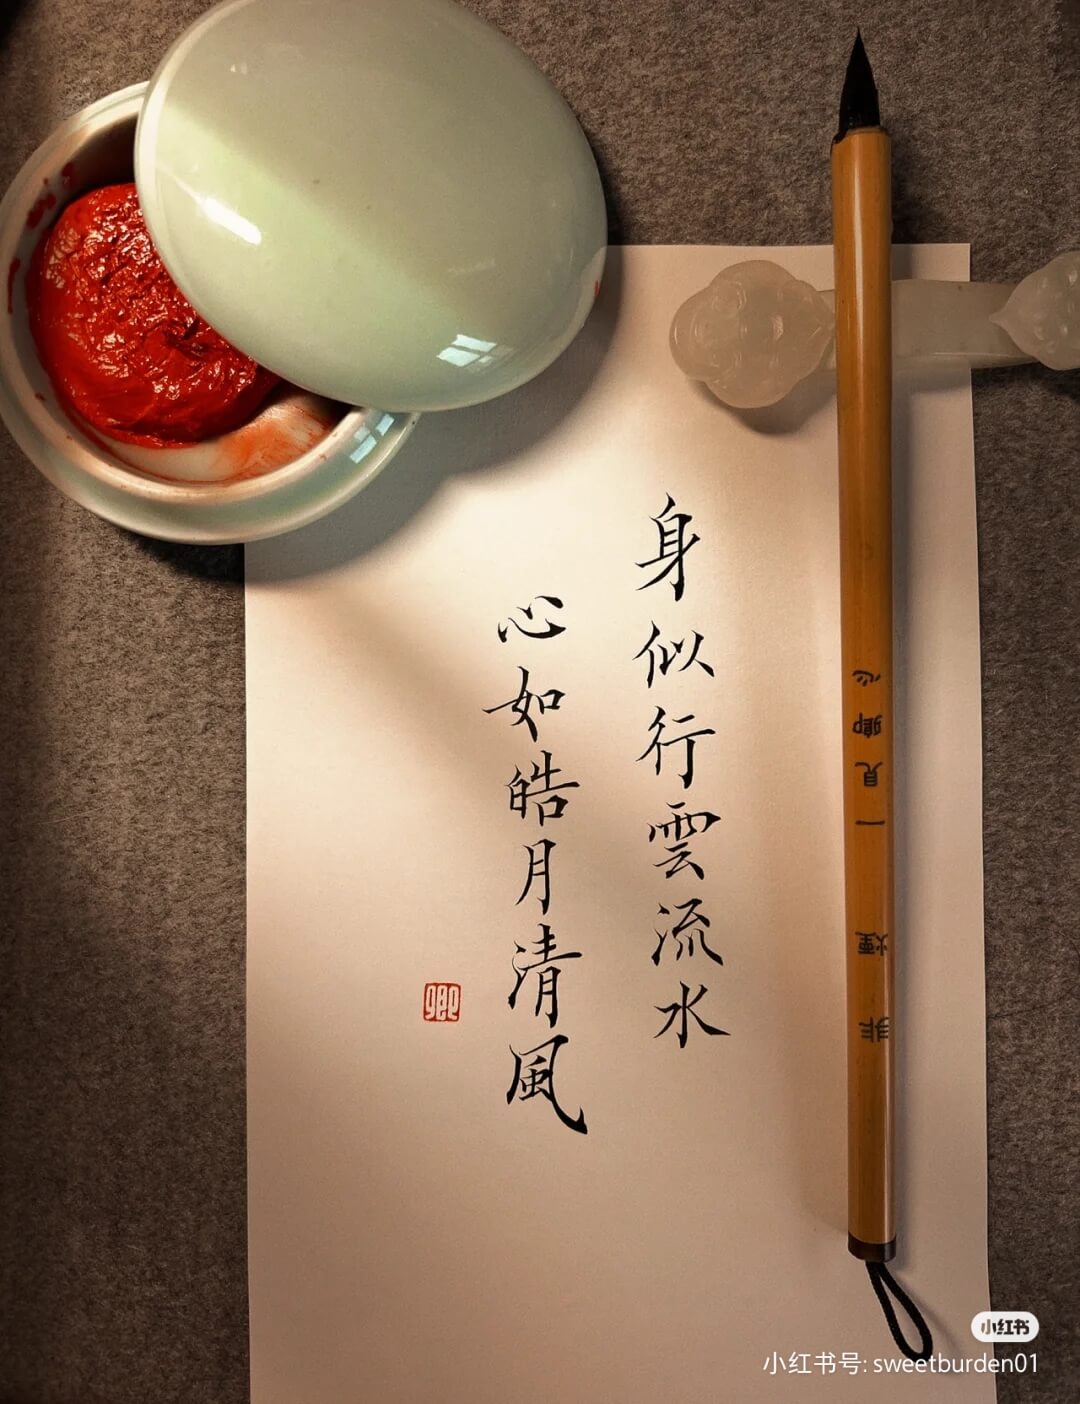 身似行雲流水
心如皓月清風
卿
非煙 一見卿心
小红书
小红书号: sweetburden01